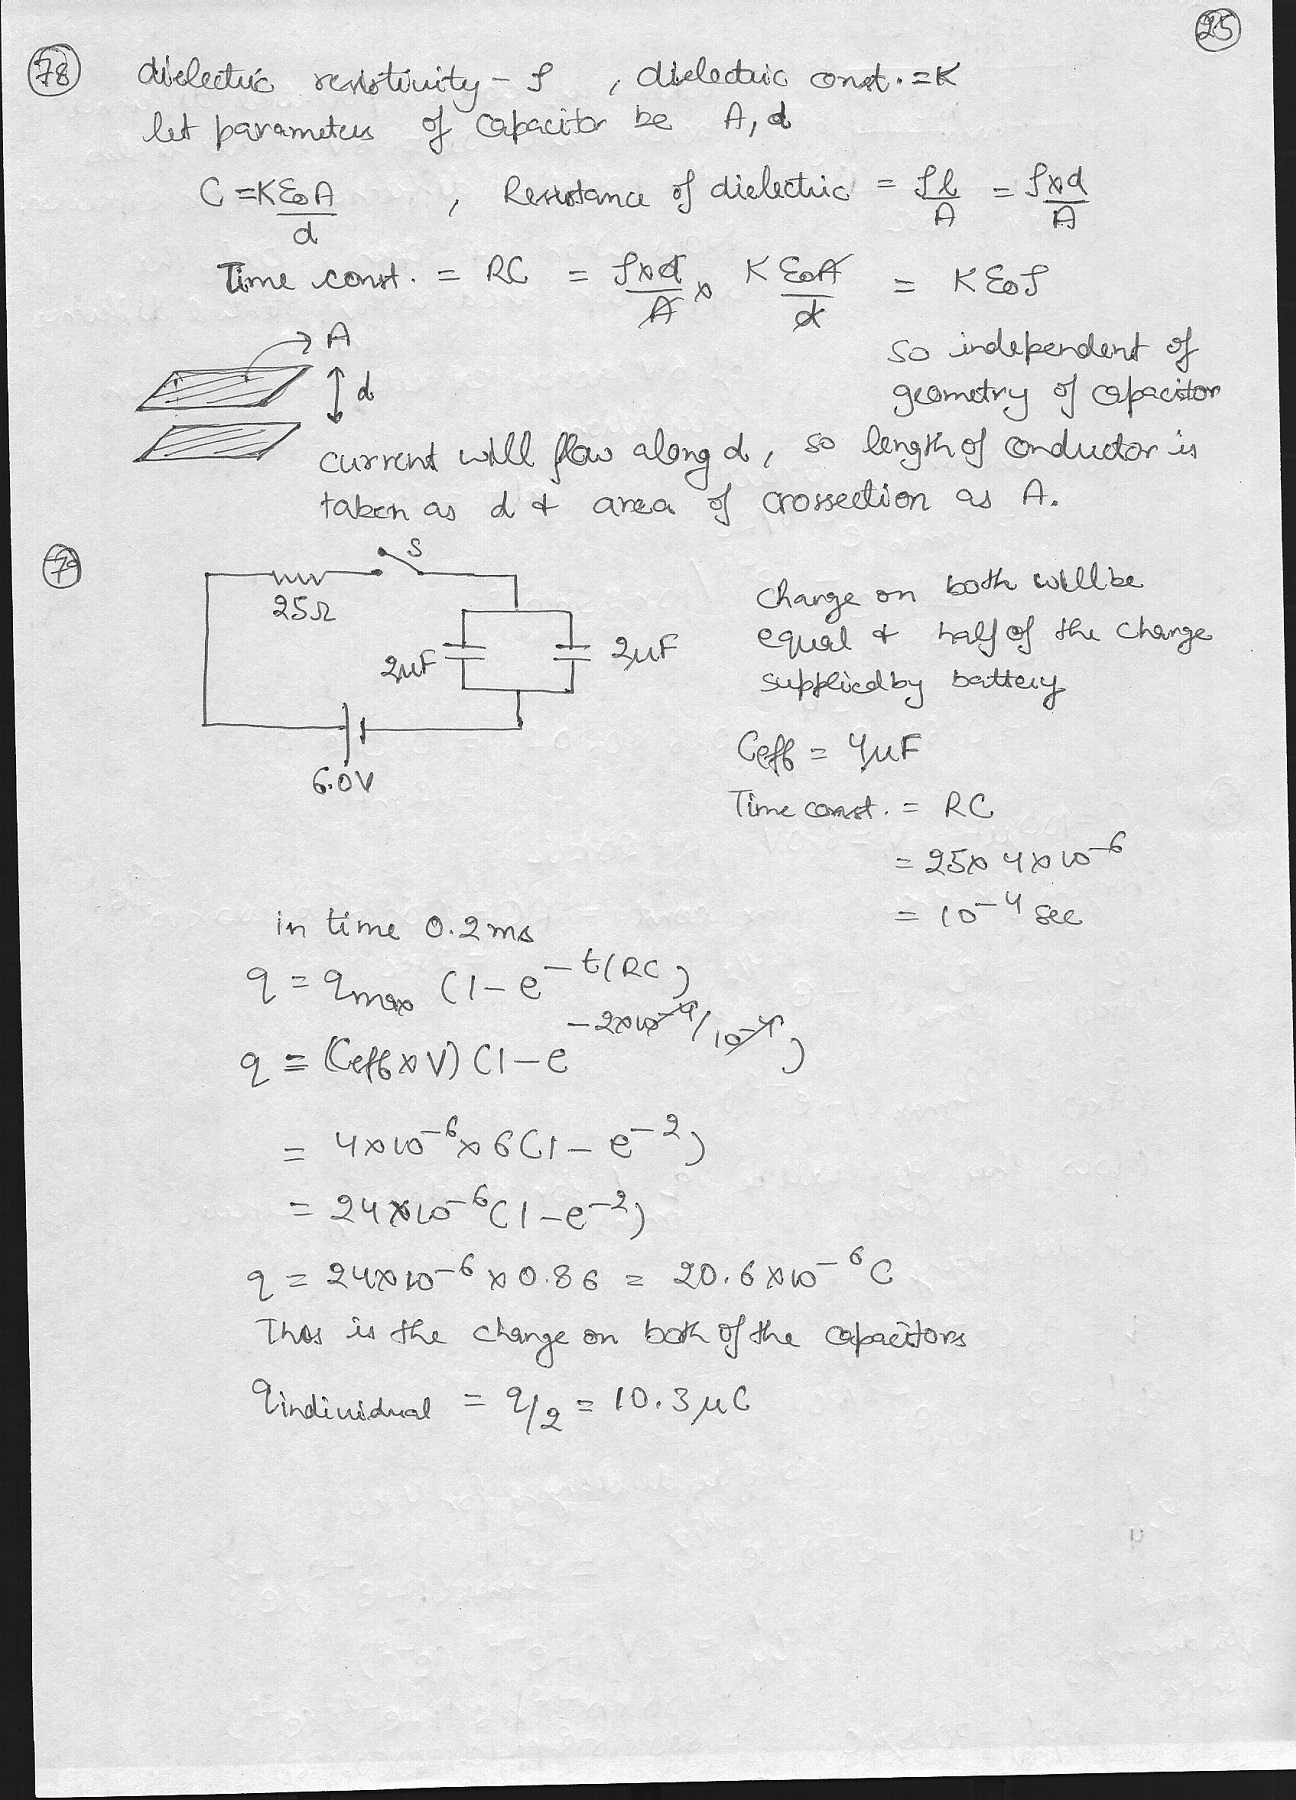 25
78 dielectric resistivity - ρ , dielectric const. = K
let parameters of capacitor be A, d
C = Kε₀A/d , Resistance of dielectric = ρl/A = ρ×d/A
Time const. = RC = ρ×d/A × Kε₀A/d = Kε₀ρ
so independent of
geometry of capacitor
A
d
current will flow along d, so length of conductor is
taken as d & area of crossection as A.
79
S
25Ω
2μF
2μF
6.0V
charge on both will be
equal & half of the charge
supplied by battery
Ceff = 4μF
Time const. = RC
= 25 × 4 × 10⁻⁶
= 10⁻⁴ sec
in time 0.2ms
q = qmax (1 - e^-t/RC)
q = (Ceff × V) (1 - e^-2×10⁻⁴/10⁻⁴)
= 4×10⁻⁶ × 6(1 - e⁻²)
= 24×10⁻⁶(1 - e⁻²)
q = 24×10⁻⁶ × 0.86 = 20.6×10⁻⁶C
This is the charge on both of the capacitors
qindividual = q/2 = 10.3μC